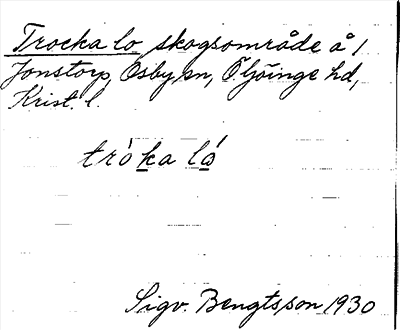 Trocka lo skogsområde å 1
Jonstorp, Osby sn, Ö Göinge hd,
Krist. l.
trò̀ka ló
Sigv. Bengtsson 1930